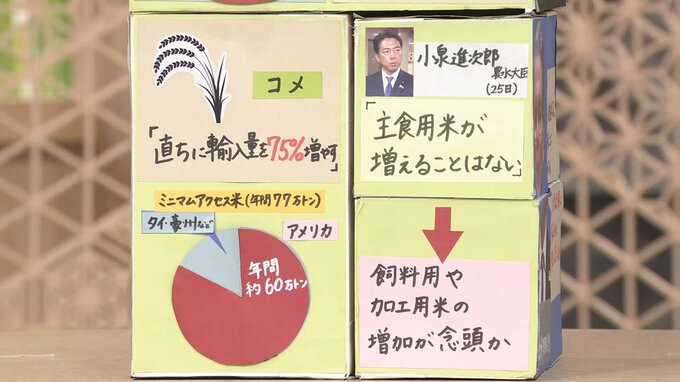 コメ
「直ちに輸入量を75%増やす」
ミニマムアクセス米(年間77万トン)
タイ・豪州など
アメリカ
年間
約60万トン
小泉進次郎
農水大臣
(25日)
「主食用米が
増えることはない」
飼料用や
加工用米の
増加が念頭か